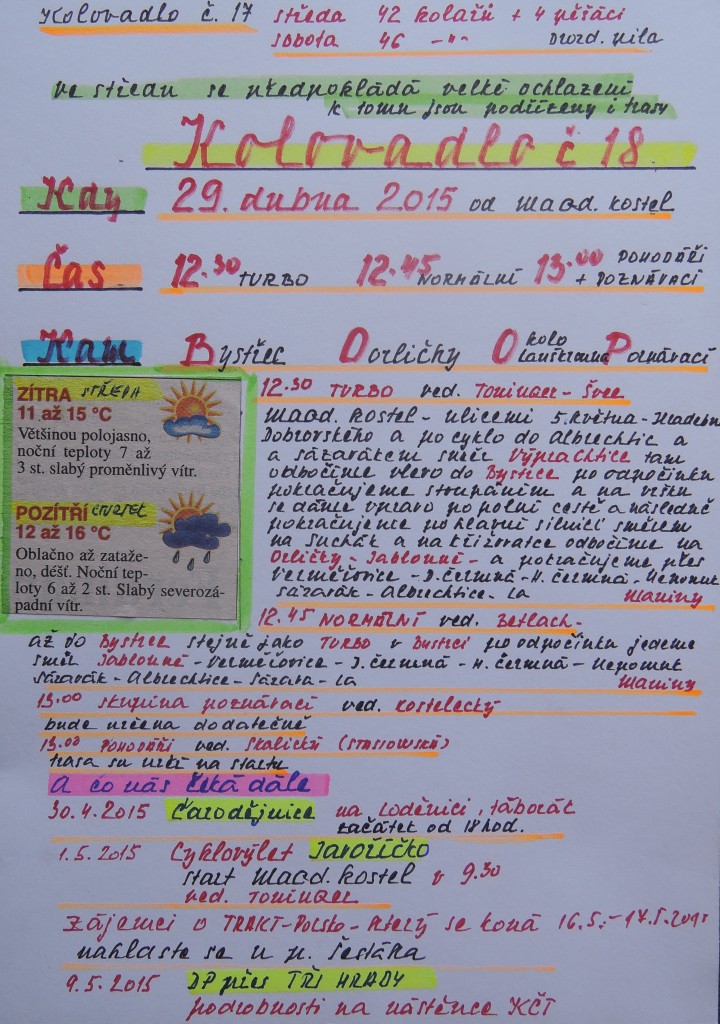 Kolovadlo č. 17 středa 42 kolařů + 4 pěšáci
sobota 46 -"- Drozd. pila
ve středu se předpokládá velké ochlazení
k tomu jsou podřízeny i trasy
Kolovadlo č 18
Kdy 29. dubna 2015 od Magd. kostel
Čas 12.30 TURBO 12.45 NORMÁLNÍ 13.00 POHODÁŘI
+ POZNÁVACÍ
Kam Bystřec Orličky Okolo Lanškrouna Poznávací
ZÍTRA STŘEDA
11 až 15 °C
Většinou polojasno,
noční teploty 7 až
3 st. slabý proměnlivý vítr.
POZÍTŘÍ ČTVRTEK
12 až 16 °C
Oblačno až zataže-
no, déšť. Noční tep-
loty 6 až 2 st. Slabý severozá-
padní vítr.
12.30 TURBO ved. Toninger - Švec
Magd. kostel - ulicemi 5. května - Hradební
Dobrovského a po cyklo do Albrechtic a
a sázavákem směr Výprachtice tam
odbočíme vlevo do Bystřce po odpočinku
pokračujeme stoupáním a na vršku
se dáme vpravo po polní cestě a následně
pokračujeme po hlavní silnici směrem
na Suchák a na křižovatce odbočíme na
Orličky - Jablonné - a pokračujeme přes
Verměřovice - D. Čermná - H. Čermná - Nepomuk
Sázavák - Albrechtice - La Maniny
12.45 NORMÁLNÍ ved. Betlach -
až do Bystřec stejně jako TURBO v Bystřci po odpočinku jedeme
směr Jablonné - Verměřovice - D. Čermná - H. Čermná - Nepomuk
Sázavák - Albrechtice - Sázava - La Maniny
13.00 skupina poznávací ved. Kostelecký
bude určena dodatečně
13.00 POHODÁŘI ved. Skalický
trasa se určí na startu
A co nás čeká dále
30.4.2015 Čarodějnice na loděnici, táborák
začátek od 18 hod.
1.5.2015 Cyklovýlet Javoříčko
start Magd. kostel v 9.30
ved. Toninger
Zájemci o TRAKT-Polsko - který se koná 16.5.-17.5.2015
nahlaste se u p. Šestáka
9.5.2015 DP přes TŘI HRADY
podrobnosti na nástěnce KČT